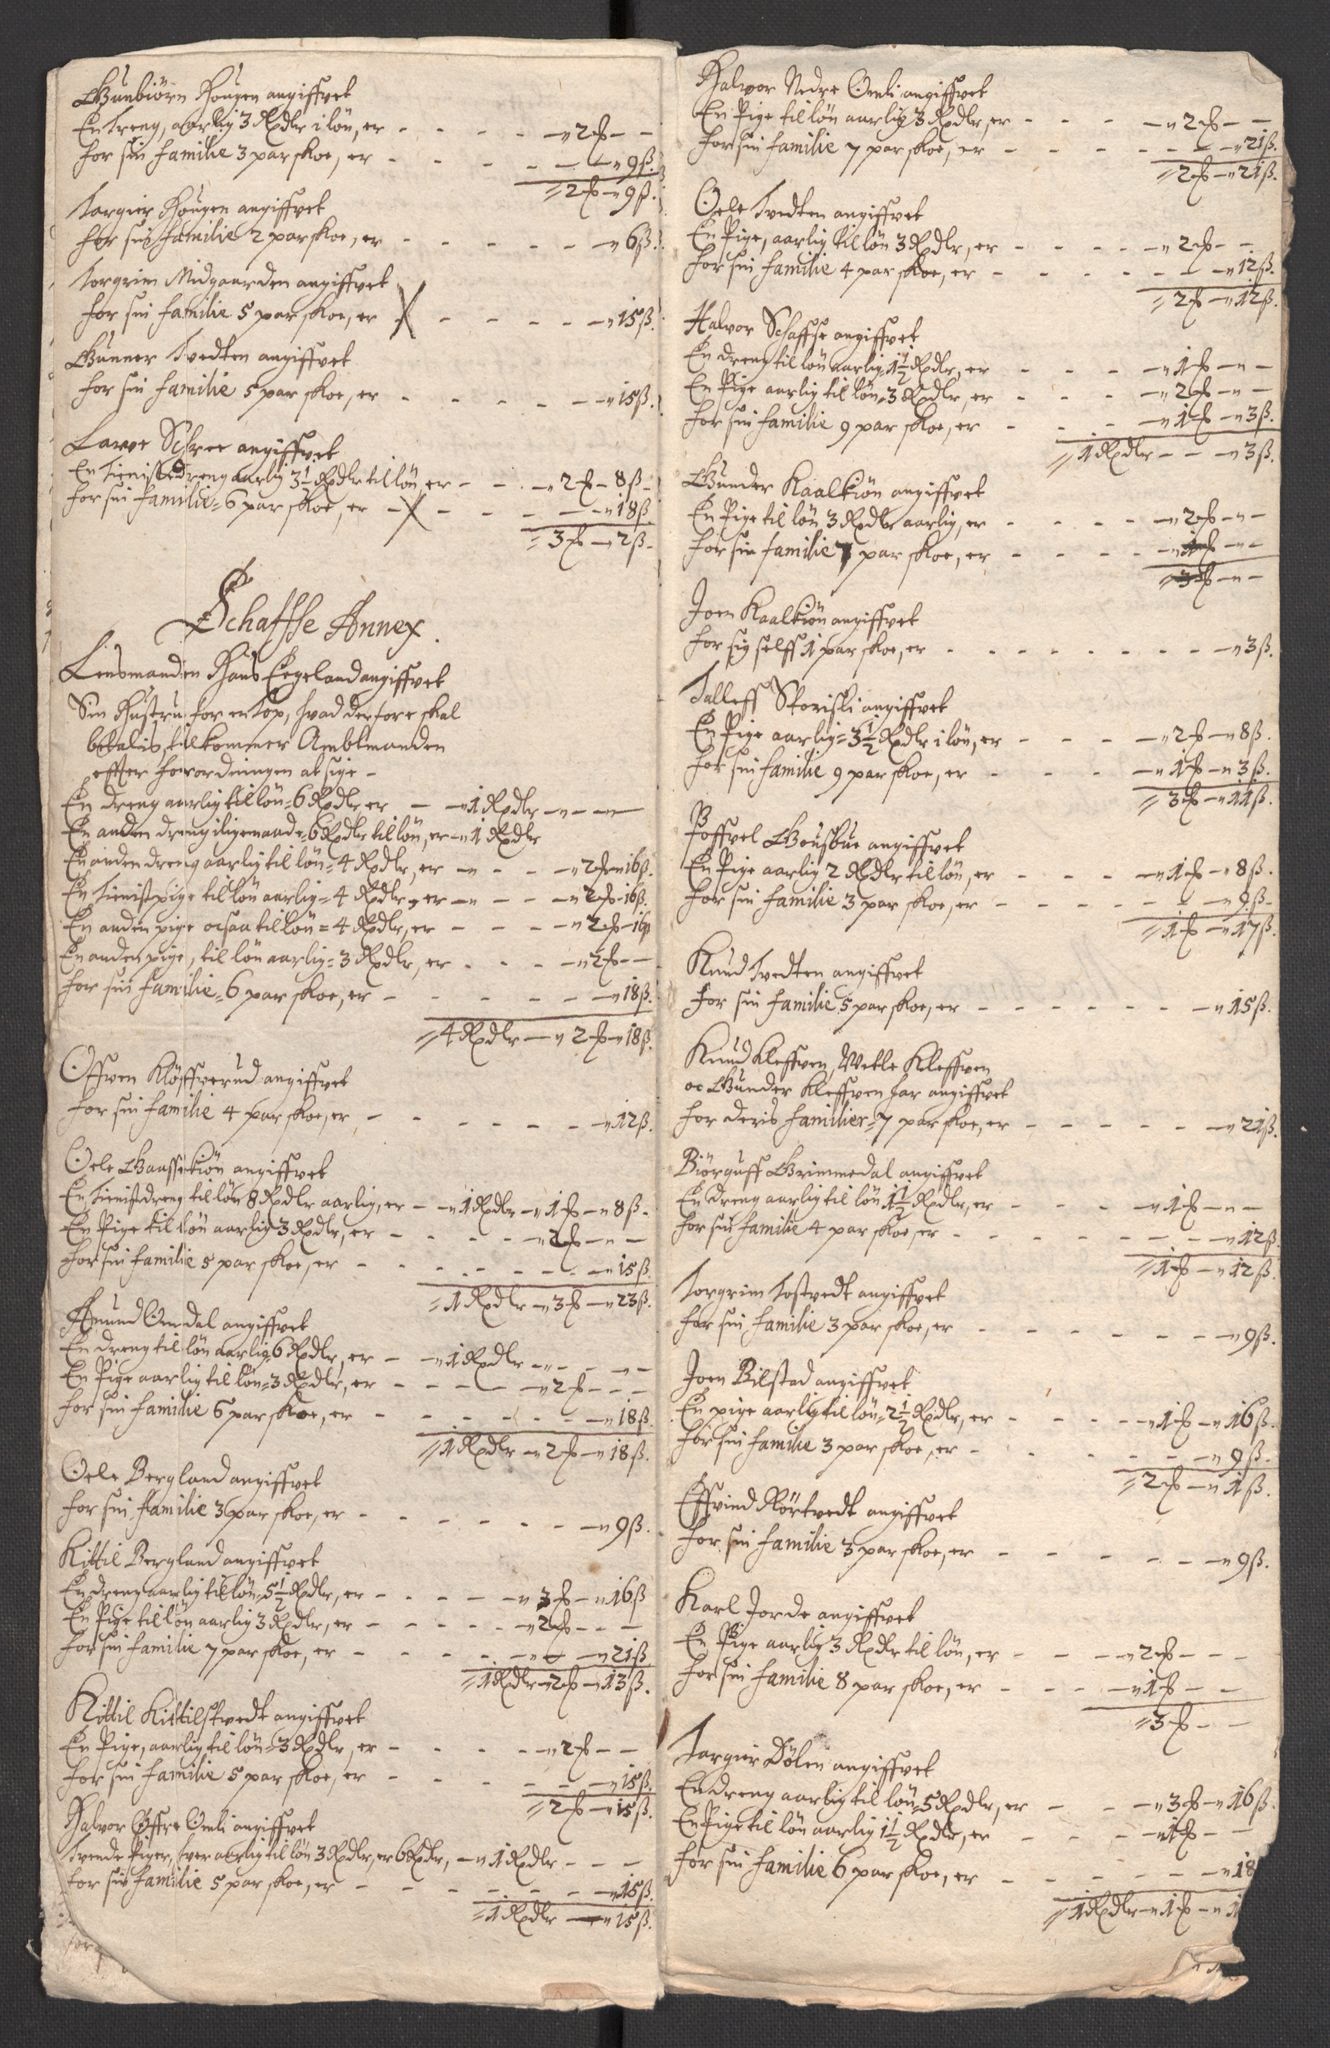 Gunbiørn Hougen angiffvet
En Dreng, aarlig 3 Rdlr i løn, er - - - - -"- 2 ƒ - -
for sin familie 3 par skoe, er - - - - - -" 9 ß.
"2 ƒ -" 9 ß.
Torgier Hougen angiffvet
for sin familie 2 par skoe, er - - - - - -" 6 ß.
Torgrim Midgaarden angiffvet
for sin familie 5 par skoe, er X - - - - -" 15 ß.
Gunner Tvedten angiffvet
for sin familie 5 par skoe, er - - - - - -" 15 ß.
Lawe Schree angiffvet
En Tieniste dreng aarlig 3½ Rdlr til løn, er - - -" 2 ƒ - 8 ß -
for sin familie = 6 par skoe, er - X - - - -" 18 ß.
" 3 ƒ -" 2 ß -
Schaffse Annex.
Lensmanden Hans Egeland angiffvet
Sin Hustru for en Top, hvad derfore skal
betalis, tilkommer Ambtmanden
effter forordningen at sige -
En dreng aarlig til løn = 6 Rdlr er - -" 1 Rdlr -" - "-
En anden dreng iligemaade = 6 Rdlr til løn, er -" 1 Rdlr
En anden dreng aarlig til løn = 4 Rdlr, er -" - - -" 2 ƒ -" 16 ß.
En Tienistpige til løn aarlig = 4 Rdlr, er -" - - -" 2 ƒ - 16 ß.
En anden pige ocsaa til løn = 4 Rdlr, er - - - -" 2 ƒ - 16 ß
En anden pige, til løn aarlig = 3 Rdlr, er - - - -" 2 ƒ - -
for sin familie = 6 par skoe, er - - - - - -" 18 ß.
" 4 Rdlr -" 2 ƒ -" 18 ß.
Offven Kløffverud angiffvet
for sin familie 4 par skoe, er - - - - - -" 12 ß.
Oele Gaassekiøn angiffvet
En Tienistdreng til løn 8 Rdlr aarlig, er - -" 1 Rdlr -" 1 ƒ -" 8 ß -
En Pige til løn aarlig 3 Rdlr, er - - - - -" 2 ƒ -" -
for sin familie 5 par skoe, er - - - - - -" 15 ß.
" 1 Rdlr -" 3 ƒ -" 23 ß.
Amund Omdal angiffvet
En dreng til løn aarlig = 6 Rdlr, er - -" 1 Rdlr -" - -" -
En Pige aarlig til løn = 3 Rdlr, er - - - - -" 2 ƒ - - -
for sin familie 6 par skoe, er - - - - - -" 18 ß
" 1 Rdlr -" 2 ƒ -" 18 ß.
Oele Bergland angiffvet
for sin familie 3 par skoe, er - - - - - -" 9 ß.
Kittil Bergland angiffvet
En dreng aarlig til løn = 5½ Rdlr, er - - - -" 3 ƒ -" 16 ß
En Pige til løn aarlig 3 Rdlr, er - - - - -" 2 ƒ - - -
for sin familie 7 par skoe, er - - - - - -" 21 ß
" 1 Rdlr - 2 ƒ -" 13 ß.
Kittil Kittilstvedt angiffvet
En Pige, aarlig til løn = 3 Rdlr, er - - - - -" 2 ƒ - -
for sin familie 5 par skoe, er - - - - - -" 15 ß.
" 2 ƒ -" 15 ß.
Halvor Øffre Omli angiffvet
Tvende Piger, hver aarlig til løn 3 Rdlr, er 6 Rdlr, -" 1 Rdlr - - -
for sin familie 5 par skoe, er - - - - - -" 15 ß.
" 1 Rdlr -" 15 ß.
Halvor Nedre Omli angiffvet
En Pige til løn aarlig 3 Rdlr, er - - - -" 2 ƒ - -
for sin familie 7 par skoe, er - - - - - -" 21 ß.
" 2 ƒ -" 21 ß.
Oele Tvedten angiffvet
En Pige, aarlig til løn 3 Rdlr, er - - - - -" 2 ƒ - -
for sin familie 4 par skoe, er - - - - - -" 12 ß.
" 2 ƒ -" 12 ß.
Halvor Schaffse angiffvet
En dreng til løn aarlig 1½ Rdlr, er - - - -" 1 ƒ -" -
En Pige aarlig til løn = 3 Rdlr, er - - - -" 2 ƒ -" -
for sin familie 9 par skoe, er - - - -" 1 ƒ -" 3 ß.
" 1 Rdlr - - -" 3 ß.
Gunder Kaalkiøn angiffvet
En Pige til løn 3 Rdlr aarlig, er - - - - -" 2 ƒ -" -
for sin familie 7 par skoe, er - - - - -" 1 ƒ -" -
" 3 ƒ -" -
Joen Kaalkiøn angiffvet
for sig selff 1 par skoe, er - - - - - - - -" 3 ß.
Talleff Skorisli angiffvet
En Pige aarlig = 3½ Rdlr i løn, er - - - -" 2 ƒ -" 8 ß.
for sin familie 9 par skoe, er - - - -" 1 ƒ -" 3 ß.
" 3 ƒ -" 11 ß.
Poffvel Gousbue angiffvet
En Pige aarlig 2 Rdlr til løn, er - - - -" 1 ƒ -" 8 ß.
for sin familie 3 par skoe, er - - - - - -" 9 ß -
" 1 ƒ -" 17 ß.
Knud Tvedten angiffvet
for sin familie 5 par skoe, er - - - - - -" 15 ß.
Knud Kleffven, Vetle Kleffven
oc Gunder Kleffven har angiffvet
for deris familier = 7 par skoe, er - - - - - -" 21 ß.
Biørguff Grimmedal angiffvet
En dreng aarlig til løn 1½ Rdlr, er - - - -" 1 ƒ -" -
for sin familie 4 par skoe, er - - - - - -" 12 ß
" 1 ƒ -" 12 ß.
Torgrim Tostvedt angiffvet
for sin familie 3 par skoe, er - - - - - -" 9 ß.
Joen Bilstad angiffvet
En pige aarlig til løn = 2½ Rdlr, er - - - - -" 1 ƒ -" 16 ß.
for sin familie 3 par skoe, er - - - - - -" 9 ß -
" 2 ƒ -" 1 ß.
Effvind Rørtvedt angiffvet
for sin familie 3 par skoe, er - - - - - -" 9 ß.
Karl Jorde angiffvet
En Pige aarlig 3 Rdlr til løn, er - - - -" 2 ƒ - - -
for sin familie 8 par skoe, er - - - -" 1 ƒ - -
" 3 ƒ - -
Torgier Dølen angiffvet
En dreng aarlig til løn = 5 Rdlr, er - - -" 3 ƒ -" 16 ß.
En Pige til løn aarlig 1½ Rdlr, er - - - -" 1 ƒ - -
for sin familie 6 par skoe, er - - - - - -" 18
" 1 Rdlr -" 1 ƒ -" 1